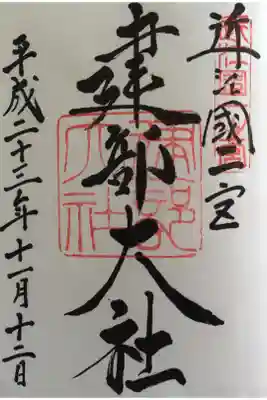 近江國一宮
建部大社
平成二十三年十一月十二日
建部
大社